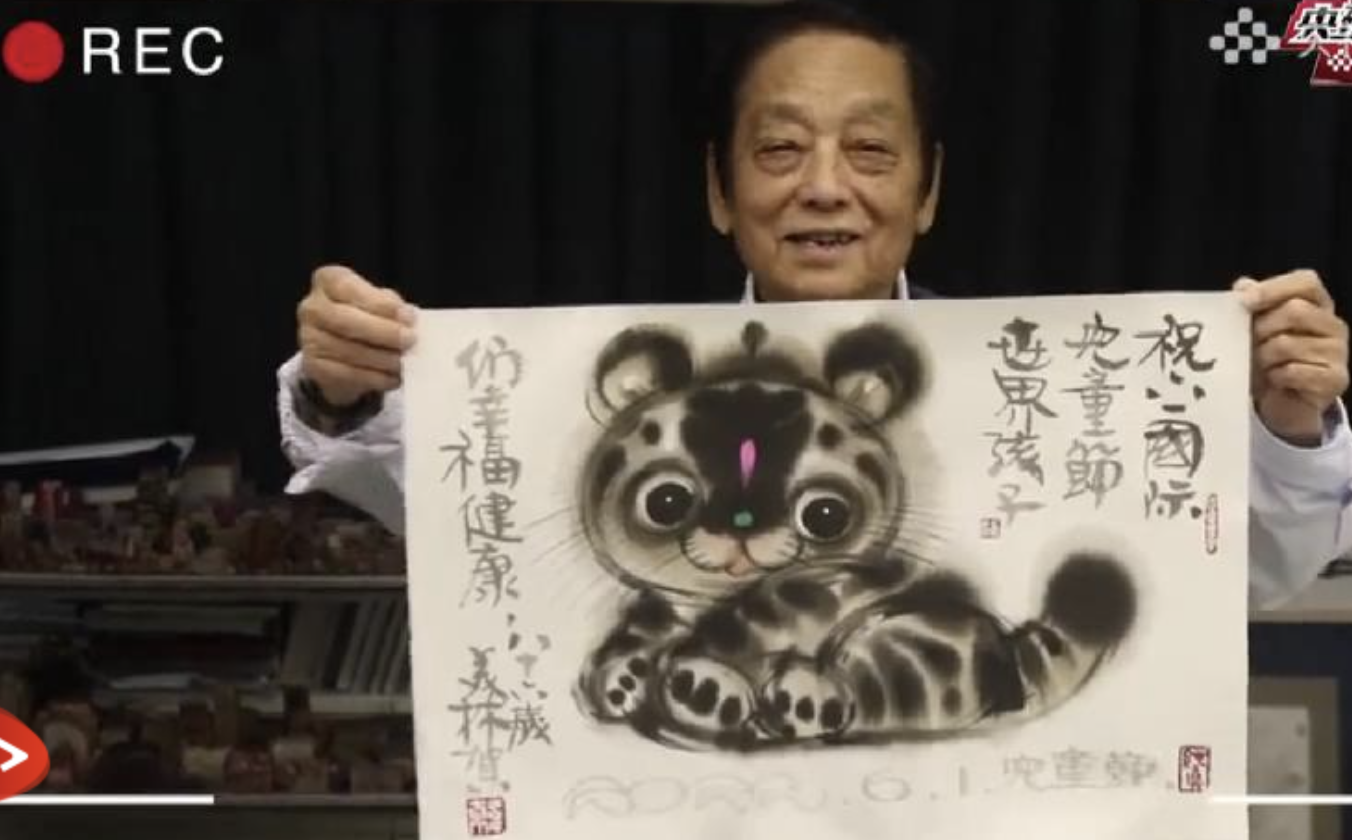 REC
央
祝六一國际
兒童節
世界孩子
们幸福健康
八十六歲
美林賀
2022.6.1.兒童節